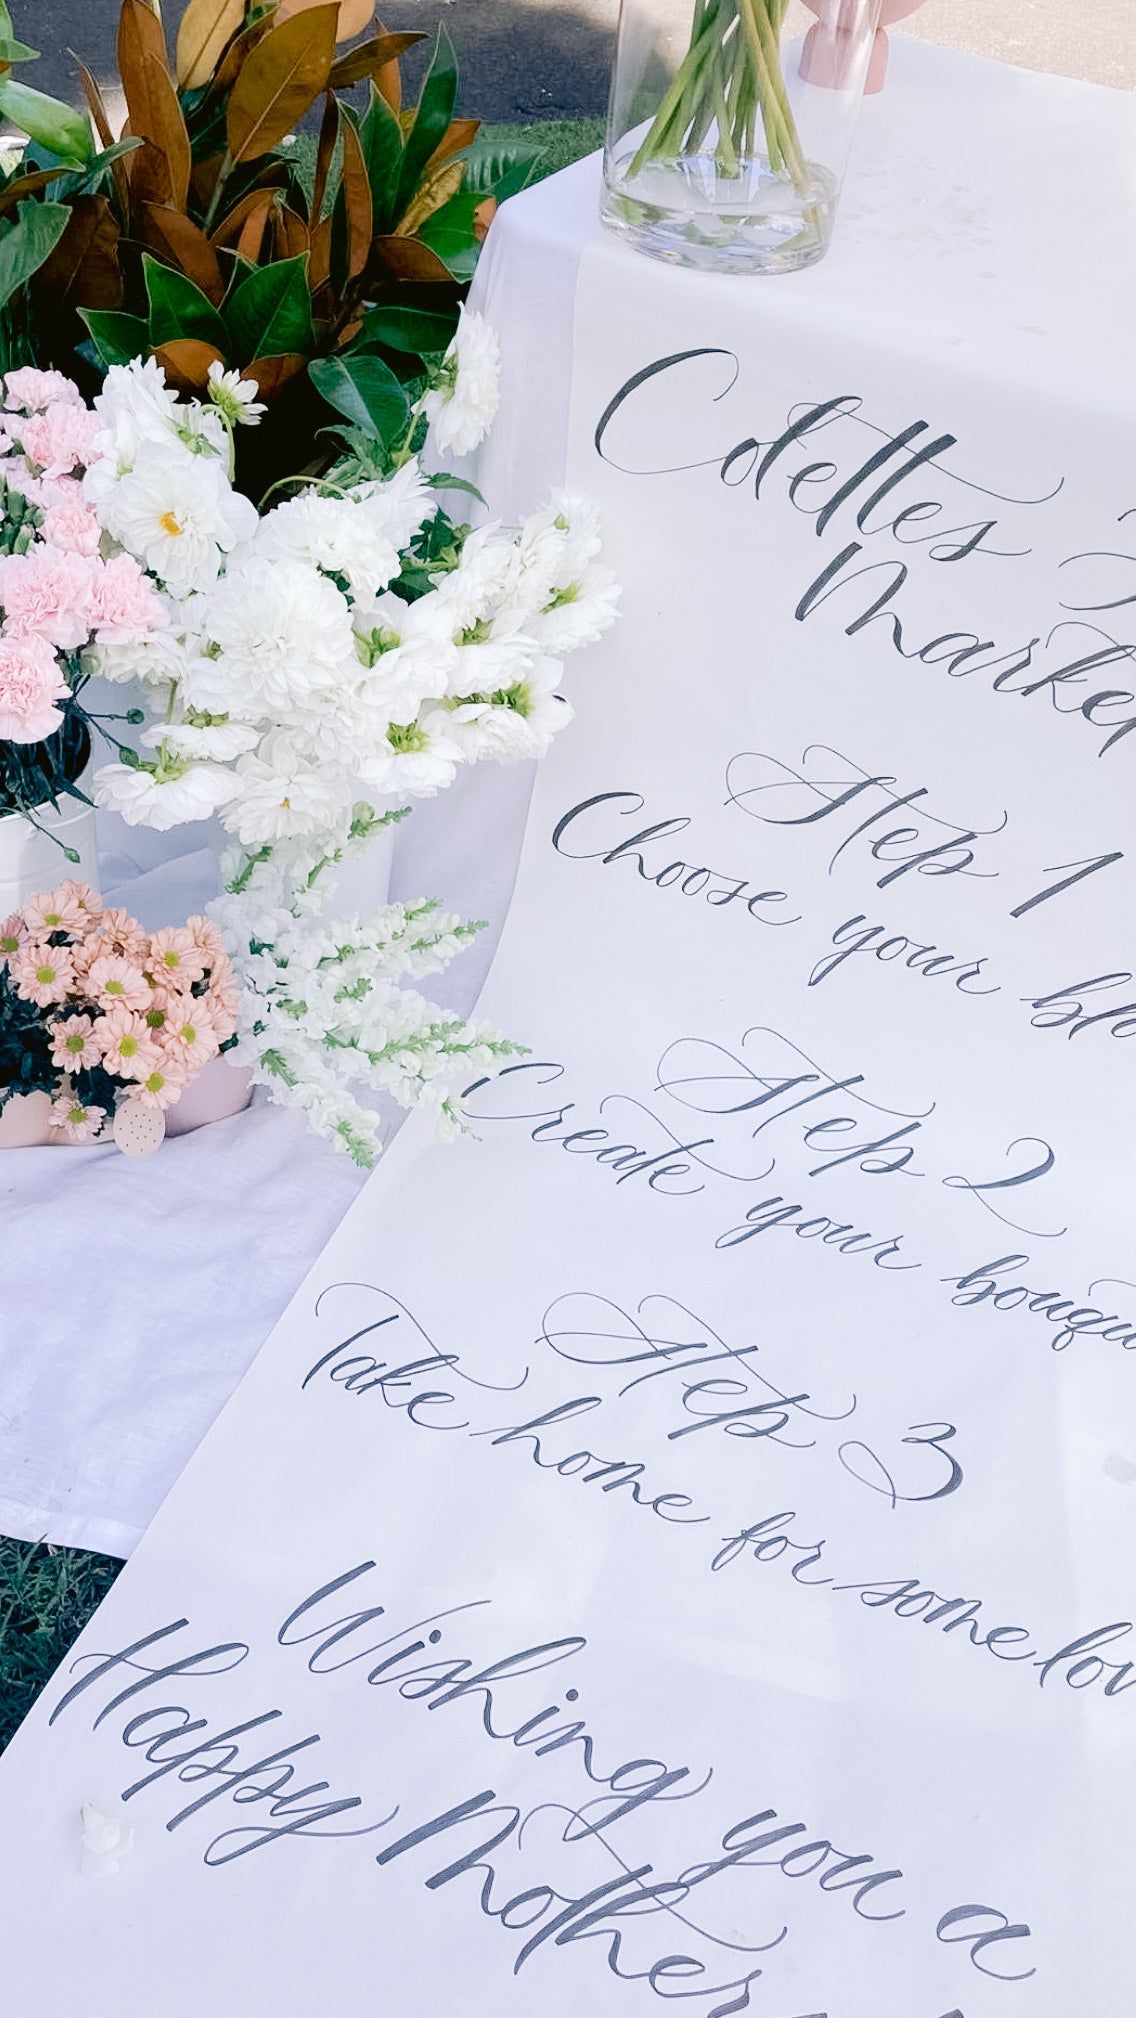 Colettes
Market
Step 1
Choose your
Step 2
Create your
Step 3
Take home for some
Wishing you a
Happy Mother